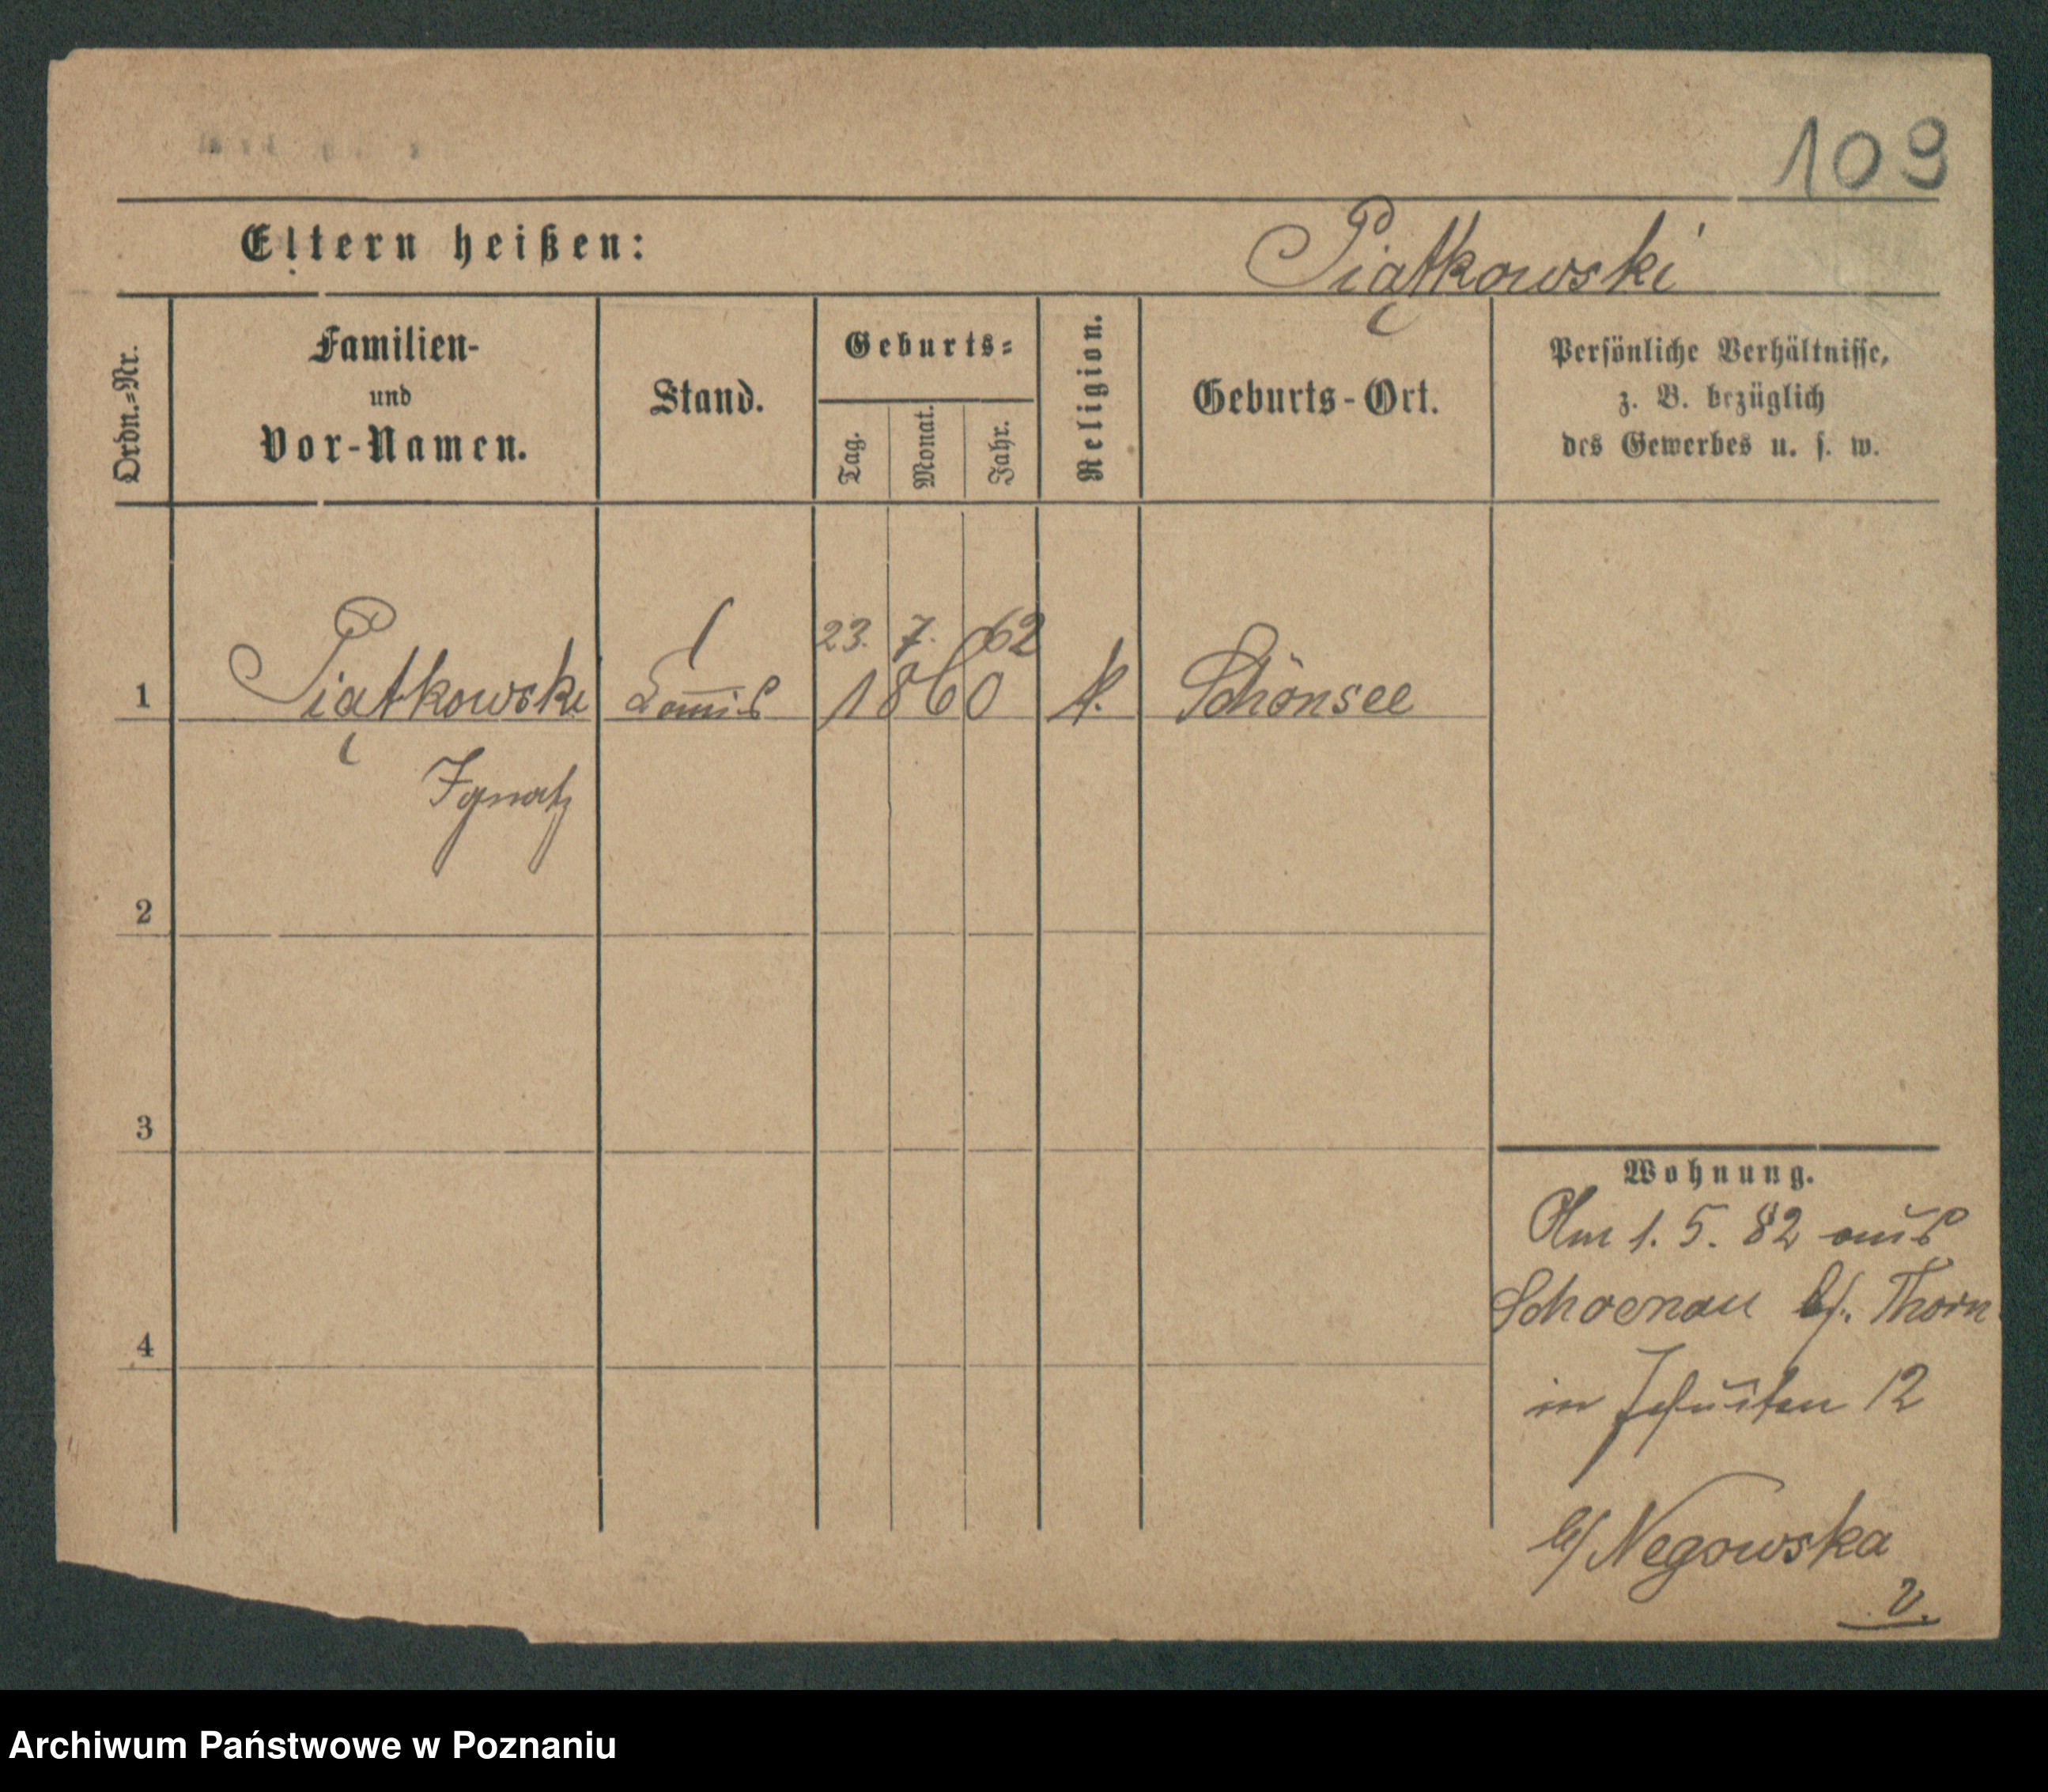 109
Eltern heißen:
Piątkowski
Ordn.-Nr.
Familien-
und
Vor-Namen.
Stand.
Geburts-
Tag.
Monat.
Jahr.
Religion.
Geburts-Ort.
Persönliche Verhältnisse,
z. B. bezüglich
des Gewerbes u. s. w.
23. 7. 62
1 Piątkowski Comis 1860 k. Schönsee
Ignatz
2
3
4
Wohnung.
Am 1. 5. 82 aus
Schoenau b/. Thorn
in Jesuiten 12
b/ Negowska
v.
Archiwum Państwowe w Poznaniu